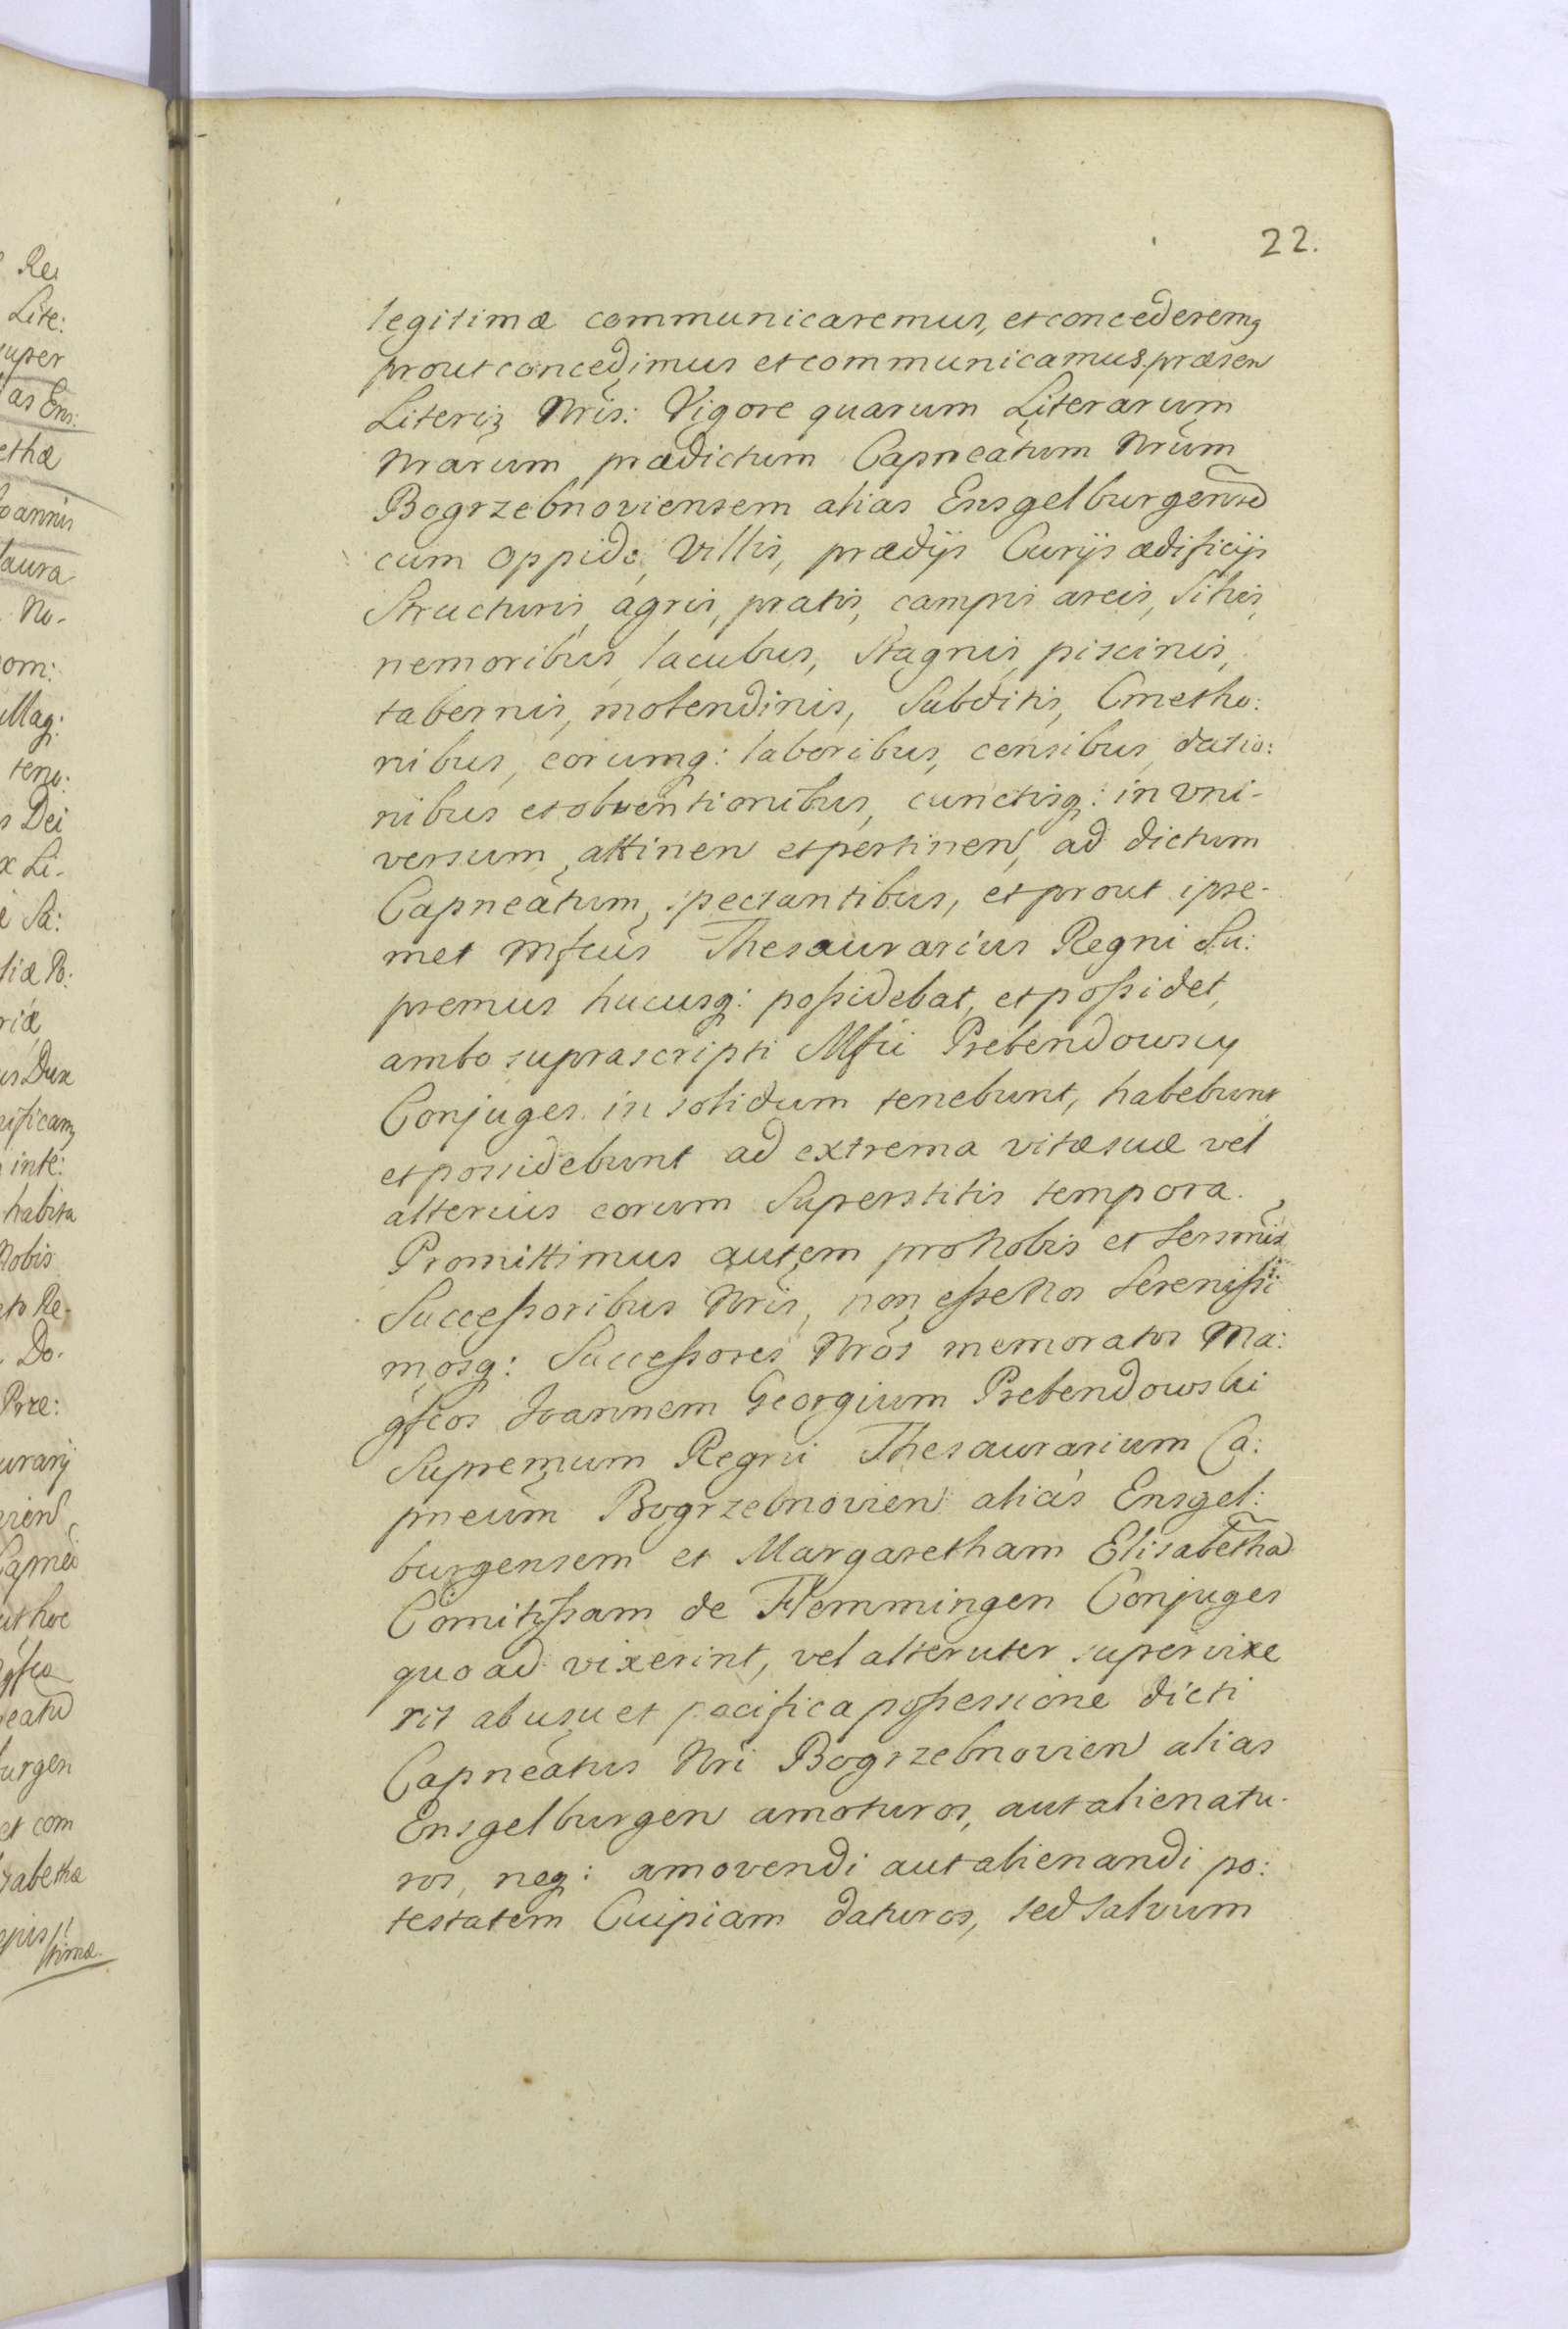 22.
legitimæ communicaremus, et concederemq
prout concedimus et communicamus præsen
Literis Nris: Vigore quarum Literarum
Nrarum prædictum Capneatum Nrum
Bogrzebnoviensem alias Ensgelburgense
cum oppido, Villis, prædijs Curijs ædificijs
Structuris, agris, pratis, campis areis, Silvis,
nemoribus, lacubus, Stagnis, piscinis,
tabernis, molendinis, Subditis, Cmetho:
nibus, eorumq: laboribus, censibus, datio:
nibus et obventionibus, cunctisq: in vni-
versum, attinen et pertinen, ad dictum
Capneatum, spectantibus, et prout ipse-
met Mfcus Thesaurarius Regni Su:
premus hucusq: possidebat, et possidet,
ambo suprascripti Mfci Prebendowscy
Conjuges in solidum tenebunt, habebunt
et possidebunt ad extrema vitæ suæ vel
alterius eorum Superstitis tempora.
Promittimus autem pro Nobis et Sersmis
Successoribus Nris, non esse Nos Serenissi
mosq: Successores Nros memoratos Ma:
gfcos Joannem Georgium Prebendowski
Supremum Regni Thesaurarium Ca:
pneum Bogrzebnovien alias Ensgel:
burgensem et Margaretham Elisabetha
Comitissam de Flemmingen Conjuges
quoad vixerint, vel alteruter supervixe
rit ab usu et pacifica possessione dicti
Capneatus Nri Bogrzebnovien alias
Ensgelburgen amoturos, aut alienatu-
ros, neq: amovendi aut alienandi po:
testatem Cuipiam daturos, sed salvum